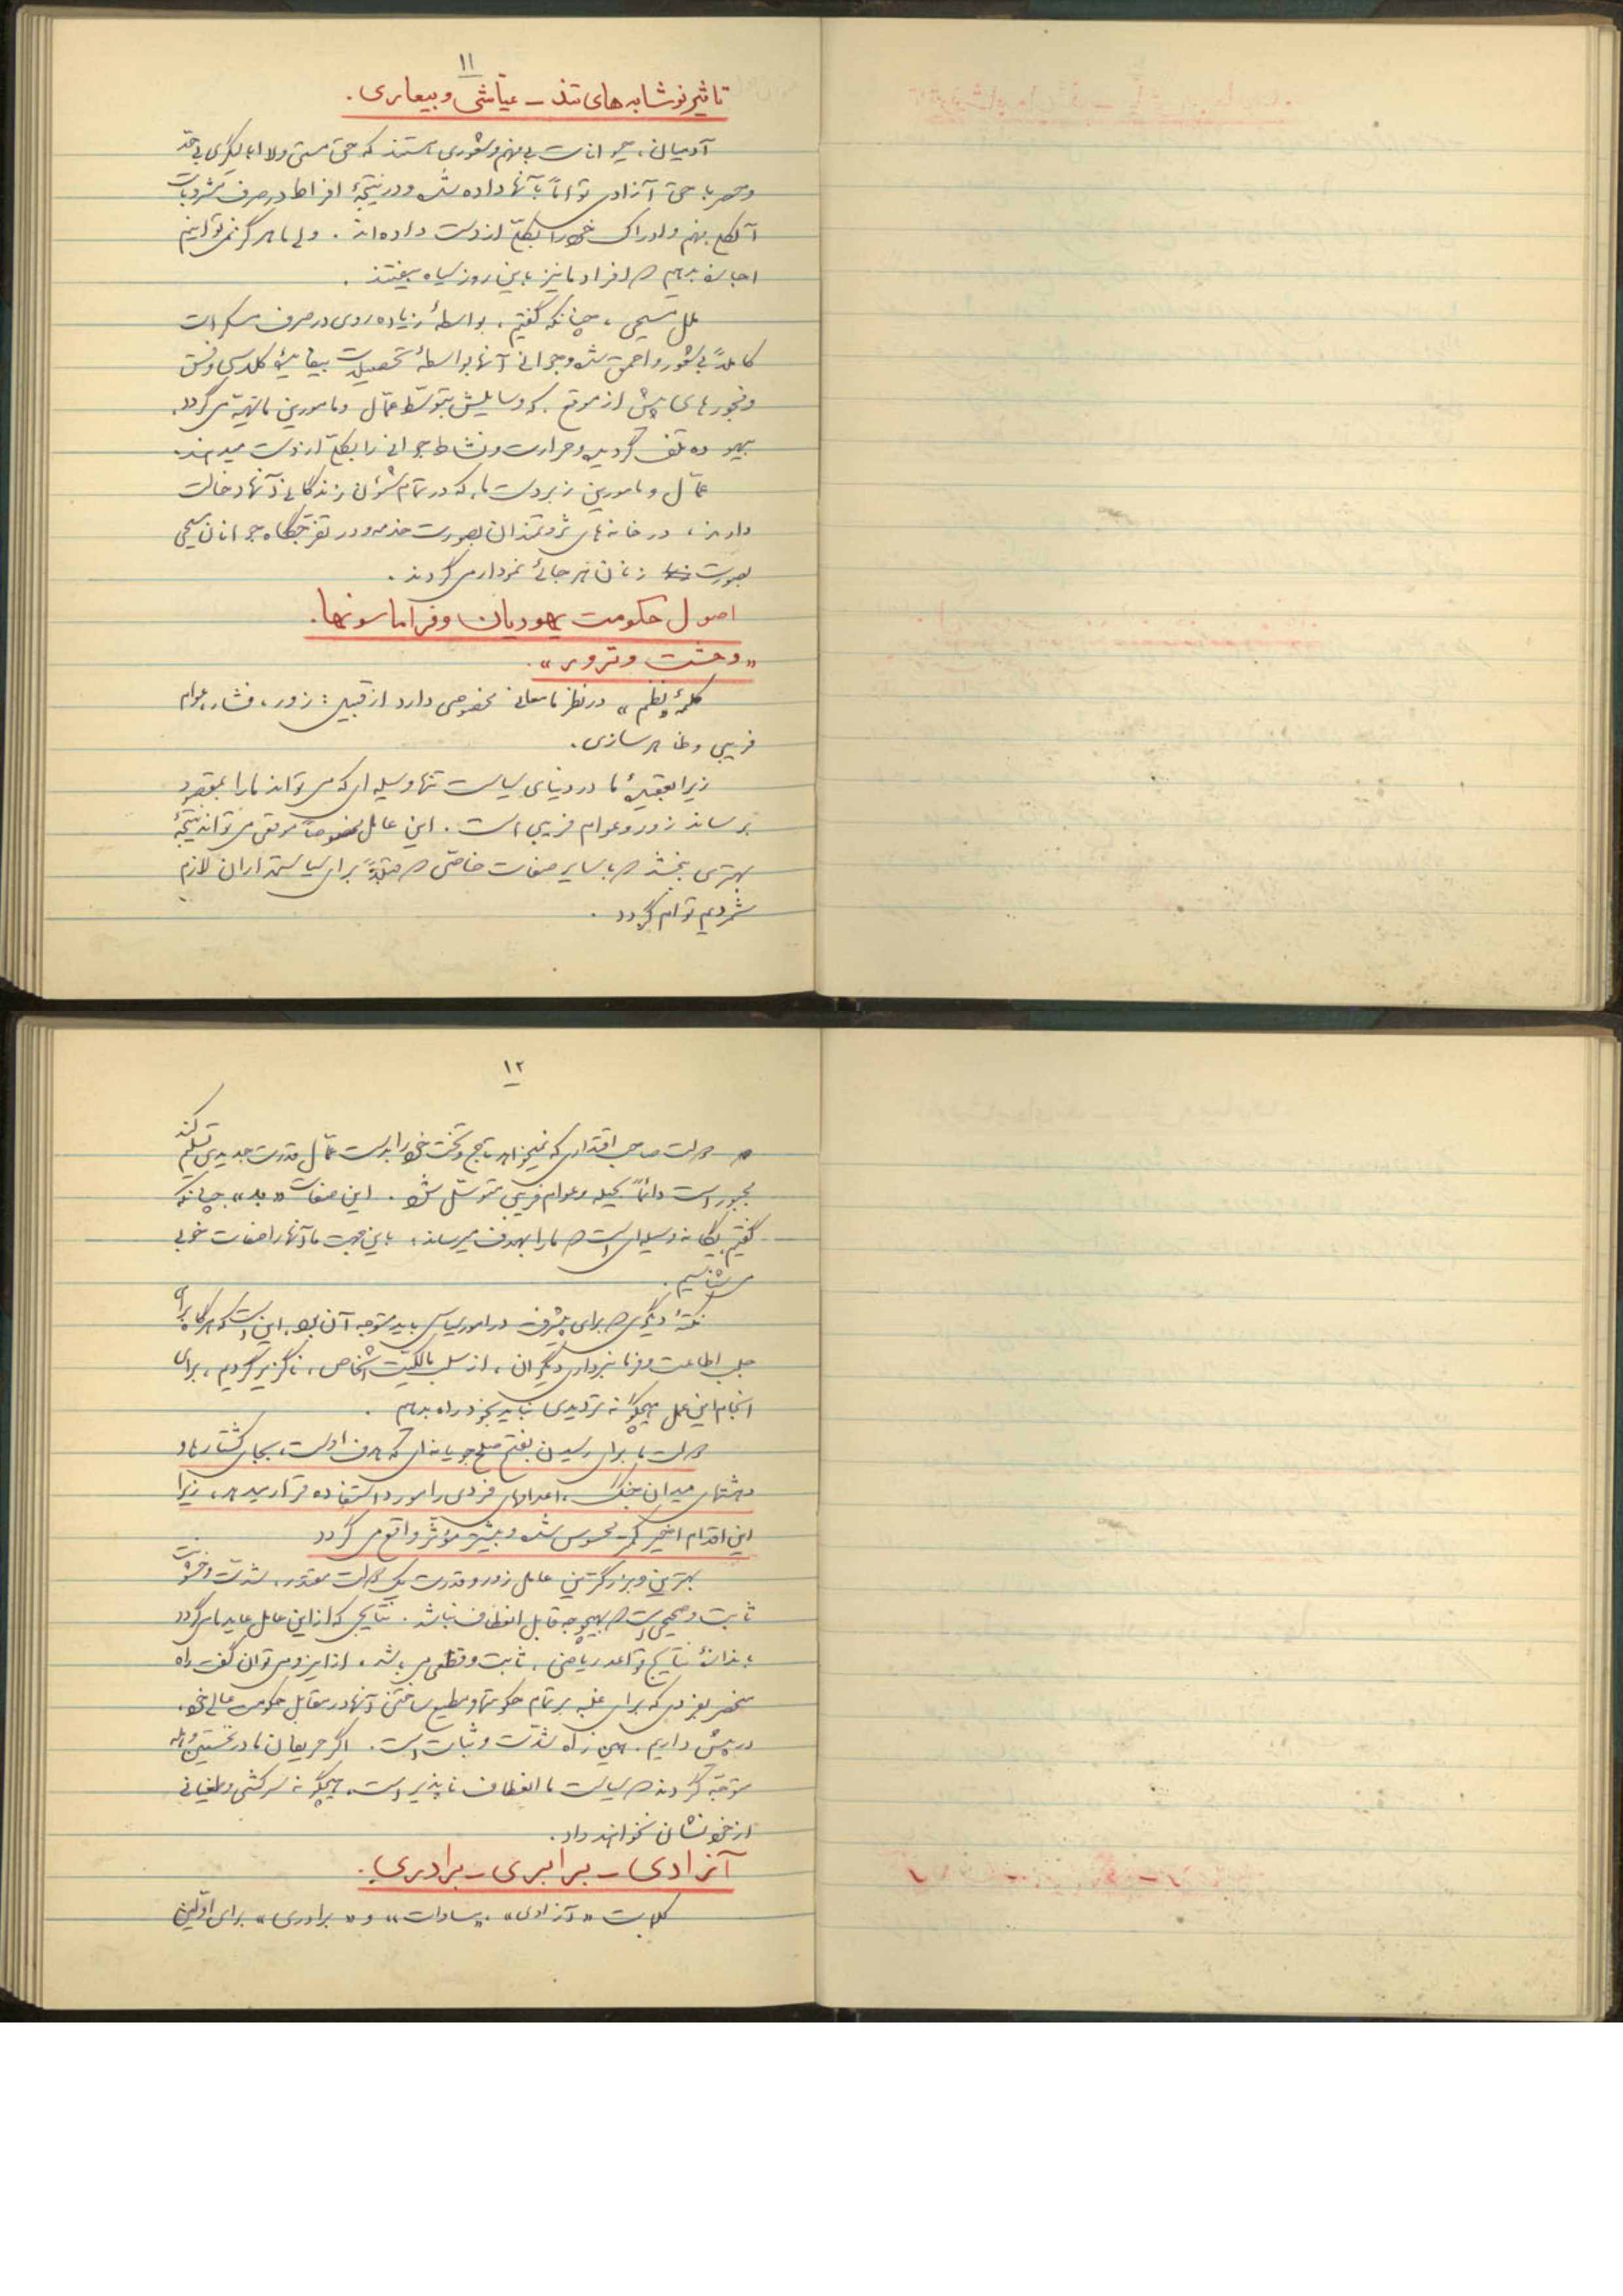 ۱۱
تاثیر نوشابه های تند ـ عیّاشی و بیعاری.
آدمیان، حیوانات بی فهم و شعوری هستند که حق مستی و لاابالیگری بی حدّ
و حصر با حق آزادی تواماً بآنها داده شده و در نتیجهٔ افراط در صرف مشروبات
آلکلی فهم و ادراک خود را بکلّی از دست داده اند. ولی ما هرگز نمی توانیم
اجازه بدهیم که افراد ما نیز باین روز سیاه بیفتند.
ملل مسیحی، چنانکه گفتیم، بواسطهٔ زیاده روی در صرف مسکرات
کاملاً بی شعور و احمق شده و جوانی آنها بواسطهٔ تحصیلات بیفایدهٔ کلاسی و فسق
و فجورهای پیش از موقع، که وسایلش بتوسّط عمّال و مامورین ما تهیّه می گردد،
بیهوده تلف گردیده و حرارت و نشاط جوانی را بکلّی از دست میدهند.
عمّال و مامورین زبردست ما، که در تمام شئون زندگانی آنها دخالت
دارند، در خانه های ثروتمندان بصورت خدمه و در تفرّجگاه جوانان مسیحی
بصورت زنان هر جائی نمودار می گردند.
اصول حکومت یهودیان و فراماسونها.
«وحشت و تزویر».
کلمهٔ «نظم» در نظر ما معانی مخصوصی دارد از قبیل: زور، فشار، عوام
فریبی و ظاهر سازی.
زیرا بعقیدهٔ ما در دنیای سیاست تنها وسیله ای که می تواند ما را بمقصود
برساند زور و عوام فریبی است. این عامل مخصوصاً موقعی می تواند نتیجهٔ
بهتری بخشد که با سایر صفات خاصّی که قبلاً برای سیاستمداران لازم
شمردیم توام گردد.
۱۲
هر دولت صاحب اقتداری که نمیخواهد تاج و تخت خود را بدست عمّال قدرت جدیدی تسلیم کند
مجبور است دائماً بحیله و عوام فریبی متوسّل شود. این صفات «بد» چنانکه
گفتیم یگانه وسیله ای است که ما را بهدف میرساند، باین جهت ما آنها را صفات خوبی
می شناسیم.
نکتهٔ دیگری که برای پیشرفت در امور سیاسی باید متوجه آن بود، این است که هر گاه برای
جلب اطاعت و فرمانبرداری دیگران، از سلب مالکیّت اشخاص، ناگزیر گردیم، برای
انجام این عمل هیچگونه تردیدی نباید بخود راه بدهیم.
دولت ما برای رسیدن بفتح صلح جویانه ای که هدف اوست، بجای کشتارها و
وحشتهای میدان جنگ، اعدامهای فردی را مورد استفاده قرار میدهد، زیرا
این اقدام اخیر کمتر محسوس شده و بیشتر مؤثر واقع می گردد
بهترین و بزرگترین عامل زور و قدرت یک دولت مقتدر، شدّت و خشونت
ثابت و صحیحی است که بهیچوجه قابل انعطاف نباشد. نتایجی که از این عامل عاید ما می گردد
باندازهٔ نتایج قواعد ریاضی، ثابت و قطعی می باشد، از اینرو می توان گفت راه
منحصر بفردی که برای غلبه بر تمام حکومتها و مطیع ساختن آنها در مقابل حکومت عالی خود،
در پیش داریم، همین راه شدّت و ثبات است. اگر حریفان ما در نخستین وهله
متوجّه گردند که سیاست ما انعطاف ناپذیر است، هیچگونه سرکشی و طغیانی
از خود نشان نخواهند داد.
آزادی ـ برابری ـ برادری.
کلمات «آزادی»، «مساوات» و «برادری» برای اوّلین